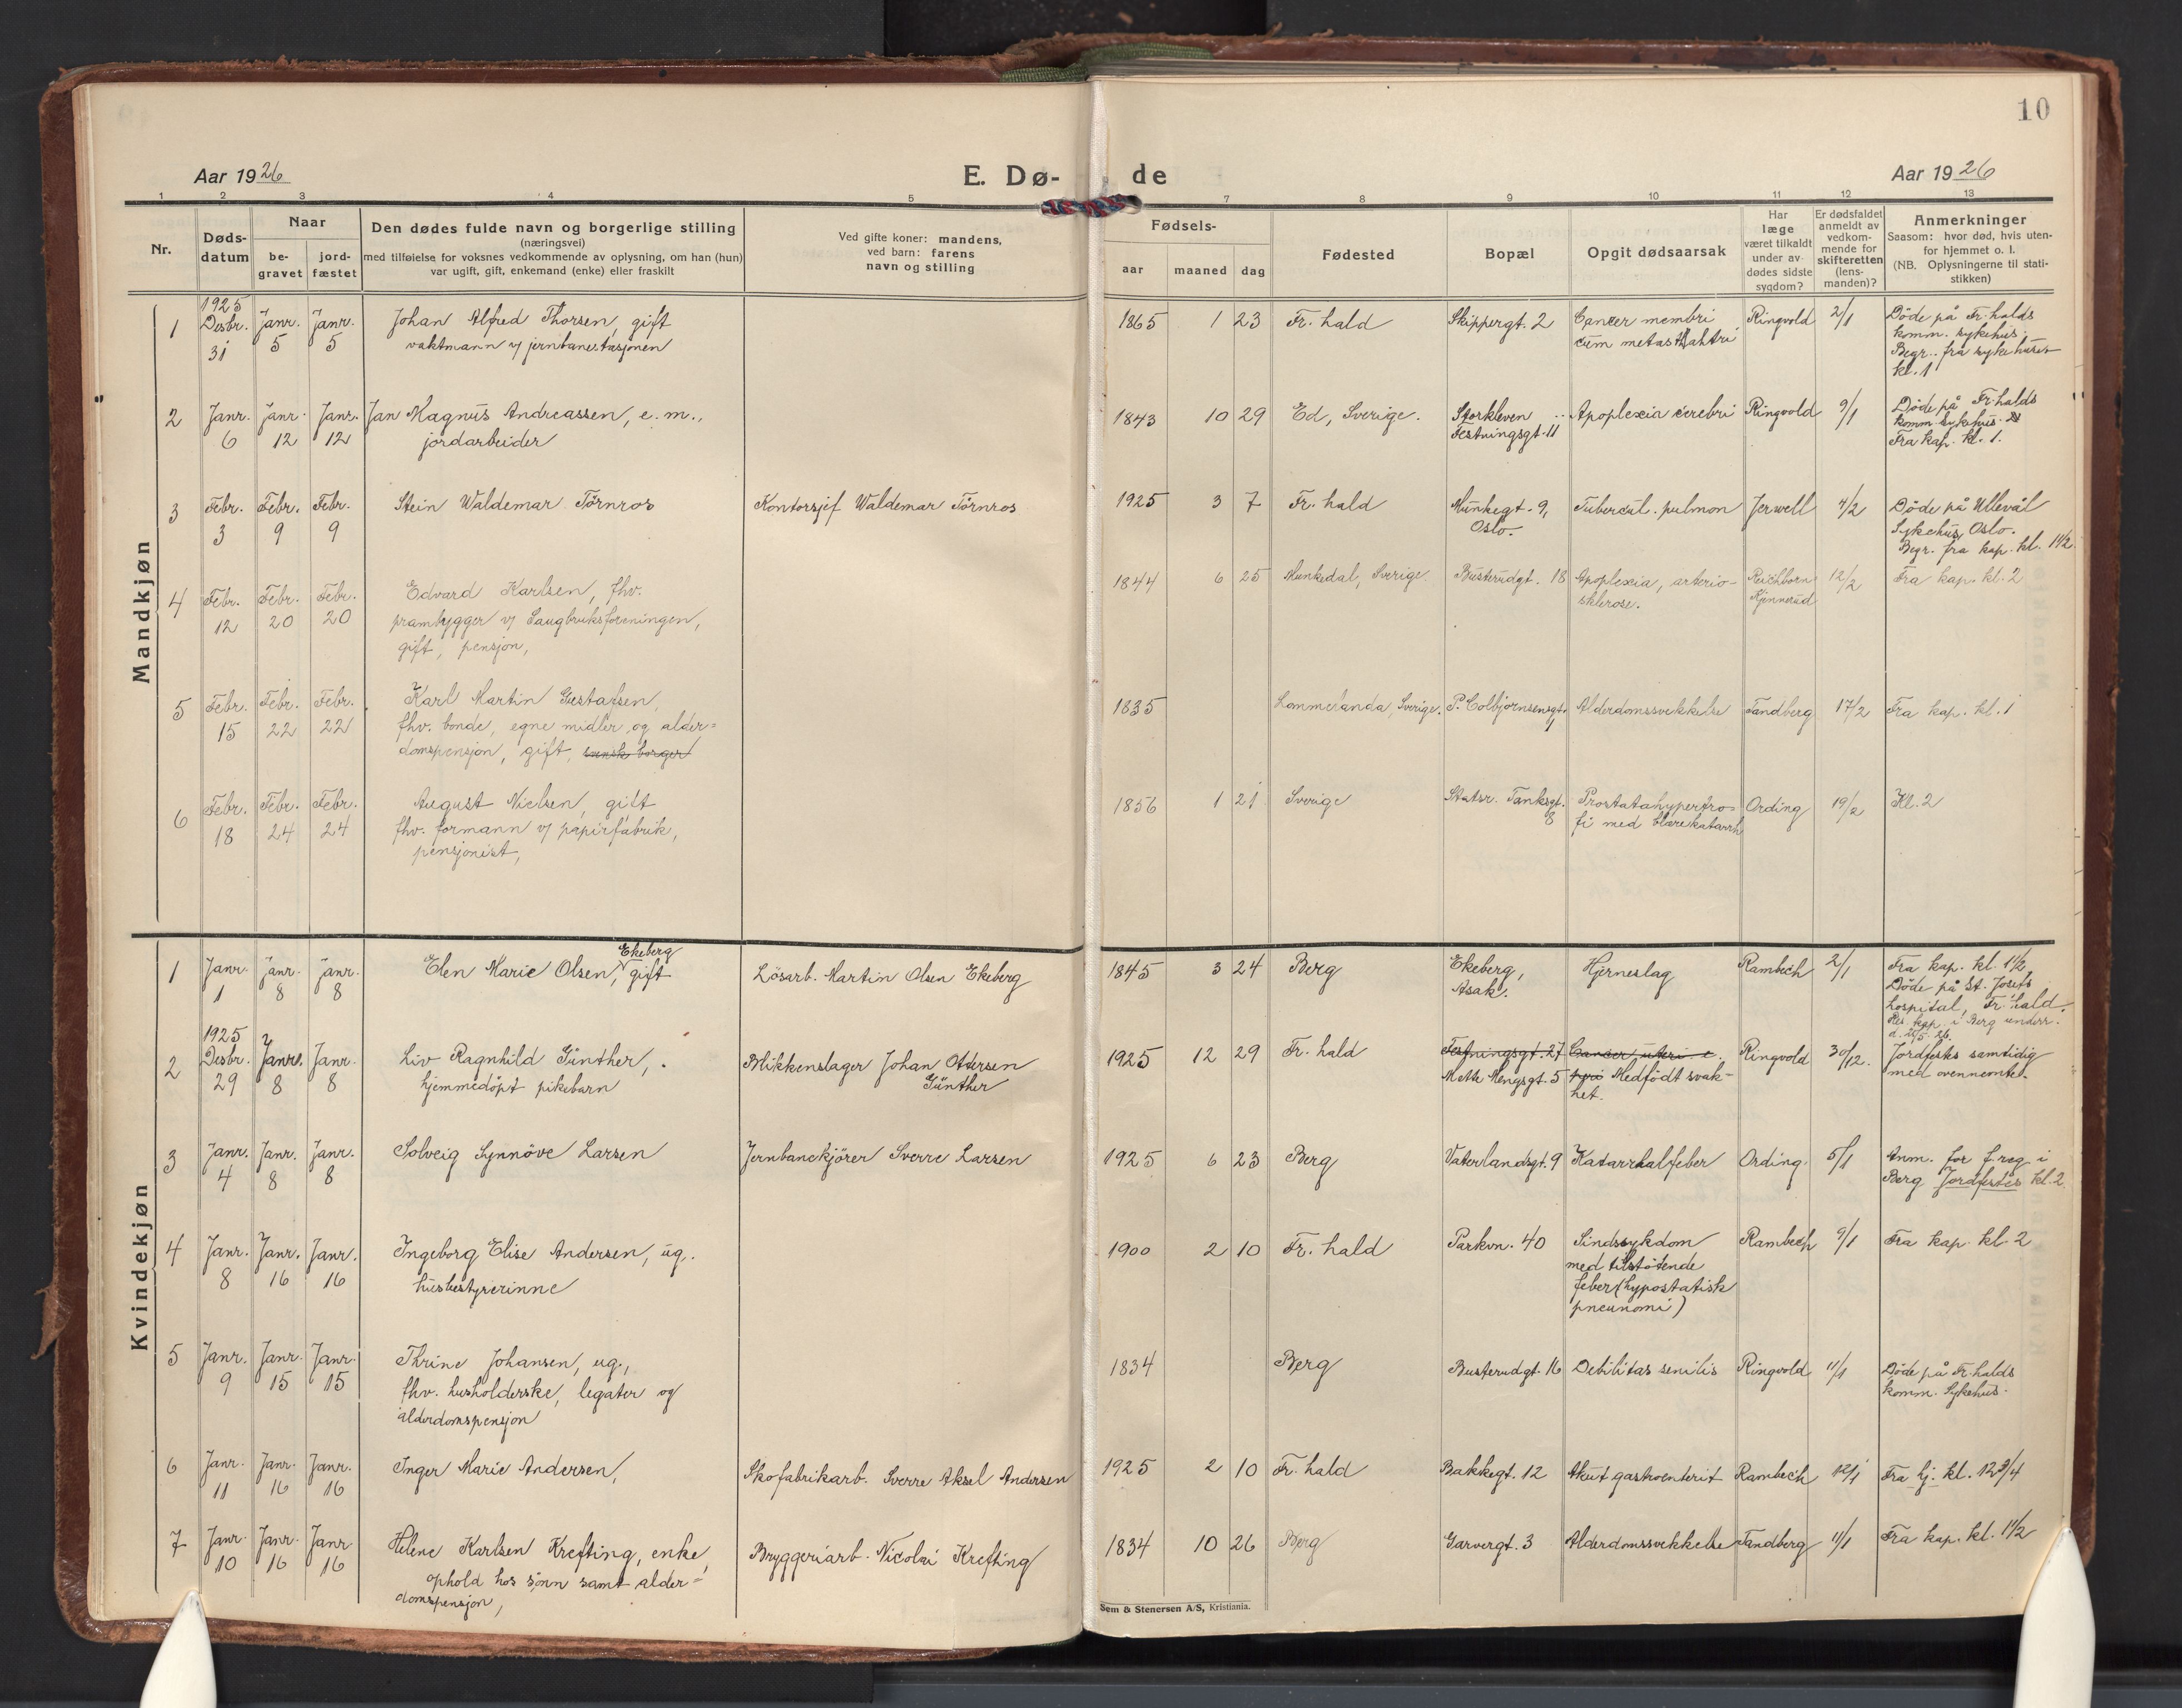 10
Aar 1926
E. Dø-
de
Aar 1926
1 2 3 4 5 7 8 9 10 11 12 13
Nr.
Døds-
datum
Naar
be-
gravet
jord-
fæstet
Den dødes fulde navn og borgerlige stilling
(næringsvei)
med tilføielse for voksnes vedkommende av oplysning, om han (hun)
var ugift, gift, enkemand (enke) eller fraskilt
Ved gifte koner: mandens,
ved barn: farens
navn og stilling
Fødsels-
aar maaned dag
Fødested
Bopæl
Opgit dødsaarsak
Har
læge
været tilkaldt
under av-
dødes sidste
sygdom?
Er dødsfaldet
anmeldt av
vedkom-
mende for
skifteretten
(lens-
manden)?
Anmerkninger
Saasom: hvor død, hvis uten-
for hjemmet o. l.
(NB. Oplysningerne til stati-
stikken)
Mandkjøn
1
1925
Desbr.
31
Janr.
5
Janr.
5
Johan Alfred Thorsen, gift
vaktmann v/ jernbanestasjonen
1865 1 23
Fr. hald
Skippergt. 2
Cancer membri
cum metas
Ringvold
2/1
Døde på Fr.halds
komm. sykehus.
Begr. fra sykehuset
kl. 1
2
Janr.
6
Janr.
12
Janr.
12
Jan Magnus Andreassen, e.m.,
jordarbeider
1843 10 29
Ed, Sverige.
Storkleven
Festningsgt. 11
Apoplexia cerebri
Ringvold
9/1
Døde på Fr.halds
komm. sykehus.
Fra kap. kl. 1.
3
Febr.
3
Febr.
9
Febr.
9
Stein Waldemar Törnros
Kontorsjef Waldemar Törnros
1925 3 7
Fr. hald
Munkegt. 9,
Oslo.
Tubercul. pulmon
Jerwell
4/2
Døde på Ullevål
Sykehus, Oslo.
Begr. fra kap. kl. 1 1/2
4
Febr.
12
Febr.
20
Febr.
20
Edvard Karlsen, fhv.
prambygger v/ Saugbruksforeningen,
gift, pensjon,
1844 6 25
Munkedal, Sverige
Busterudgt. 18
Apoplexia, arterio-
sklerose.
Reichborn
Kjennerud
12/2
Fra kap. kl. 2
5
Febr.
15
Febr.
22
Febr.
22
Karl Martin Gustafsen,
fhv. bonde, egne midler og alder=
domspensjon, gift, svensk borger
1835
Lommelanda, Sverige.
P. Colbjørnsensgt.
Alderdomssvekkelse
Tandberg
17/2
Fra kap. kl. 1
6
Febr.
18
Febr.
24
Febr.
24
August Nielsen, gift
fhv. formann v/ papirfabrik,
pensjonist,
1856 1 21
Sverige
Statsr. Tanksgt.
8
Prostatahypertro=
fi med blærekatarrh
Ording
19/2
Kl. 2
Kvindekjøn
1
Janr.
1
Janr.
8
Janr.
8
Ekeberg
Elen Marie Olsen, gift
Lösarb. Martin Olsen Ekeberg
1845 3 24
Berg
Ekeberg,
Asak.
Hjerneslag
Rambech
2/1
Fra kap. kl. 1 1/2
Døde på St. Josefs
hospital, Fr. hald.
Res. kap. i Berg underr.
d. 21/5. 26.
2
1925
Desbr.
29
Janr.
8
Janr.
8
Liv Ragnhild Günther,
hjemmedøpt pikebarn
Blikkenslager Johan Odersen
Günther
1925 12 29
Fr. hald
Festningsgt. 27
Mette Mengsgt. 5
Cancer uteri c.
Medfödt svak-
het.
Ringvold
30/12.
Jordfestes samtidig
med ovennevnte.
3
Janr.
4
Janr.
8
Janr.
8
Solveig Synnöve Larsen
Jernbanekjörer Sverre Larsen
1925 6 23
Berg
Vaterlandsgt. 9
Katarrhalfeber
Ording
5/1
Anm. for f.reg i
Berg Jordfestes kl. 2
4
Janr.
8
Janr.
16
Janr.
16
Ingeborg Elise Andersen, ug.
husbestyrerinne
1900 2 10
Fr. hald
Parkvn. 40
Sindssykdom
med tilstötende
feber (hypostatisk
pneunomi)
Rambech
9/1
Fra kap. kl. 2
5
Janr.
9
Janr.
15
Janr.
15
Thrine Johansen, ug.,
fhv. husholderske, legater og
alderdomspensjon
1834
Berg
Busterudgt. 16
Debilitas senilis
Ringvold
11/1
Døde på Fr.halds
komm. Sykehus.
6
Janr.
11
Janr.
16
Janr.
16
Inger Marie Andersen,
Skofabrikarb. Sverre Aksel Andersen
1925 2 10
Fr. hald
Bakkegt. 12
Akut gastroenterit
Rambech
12/1
Fra hj. kl. 12 3/4
7
Janr.
10
Janr.
16
Janr.
16
Helene Karlsen Krefting, enke,
ophold hos sönn samt alder=
domspensjon,
Bryggeriarb. Nicolai Krefting
1834 10 26
Berg
Garvergt. 3
Alderdomssvekkelse
Tandberg
11/1
Fra kap. kl. 1 1/2
Sem & Stenersen A/S, Kristiania.